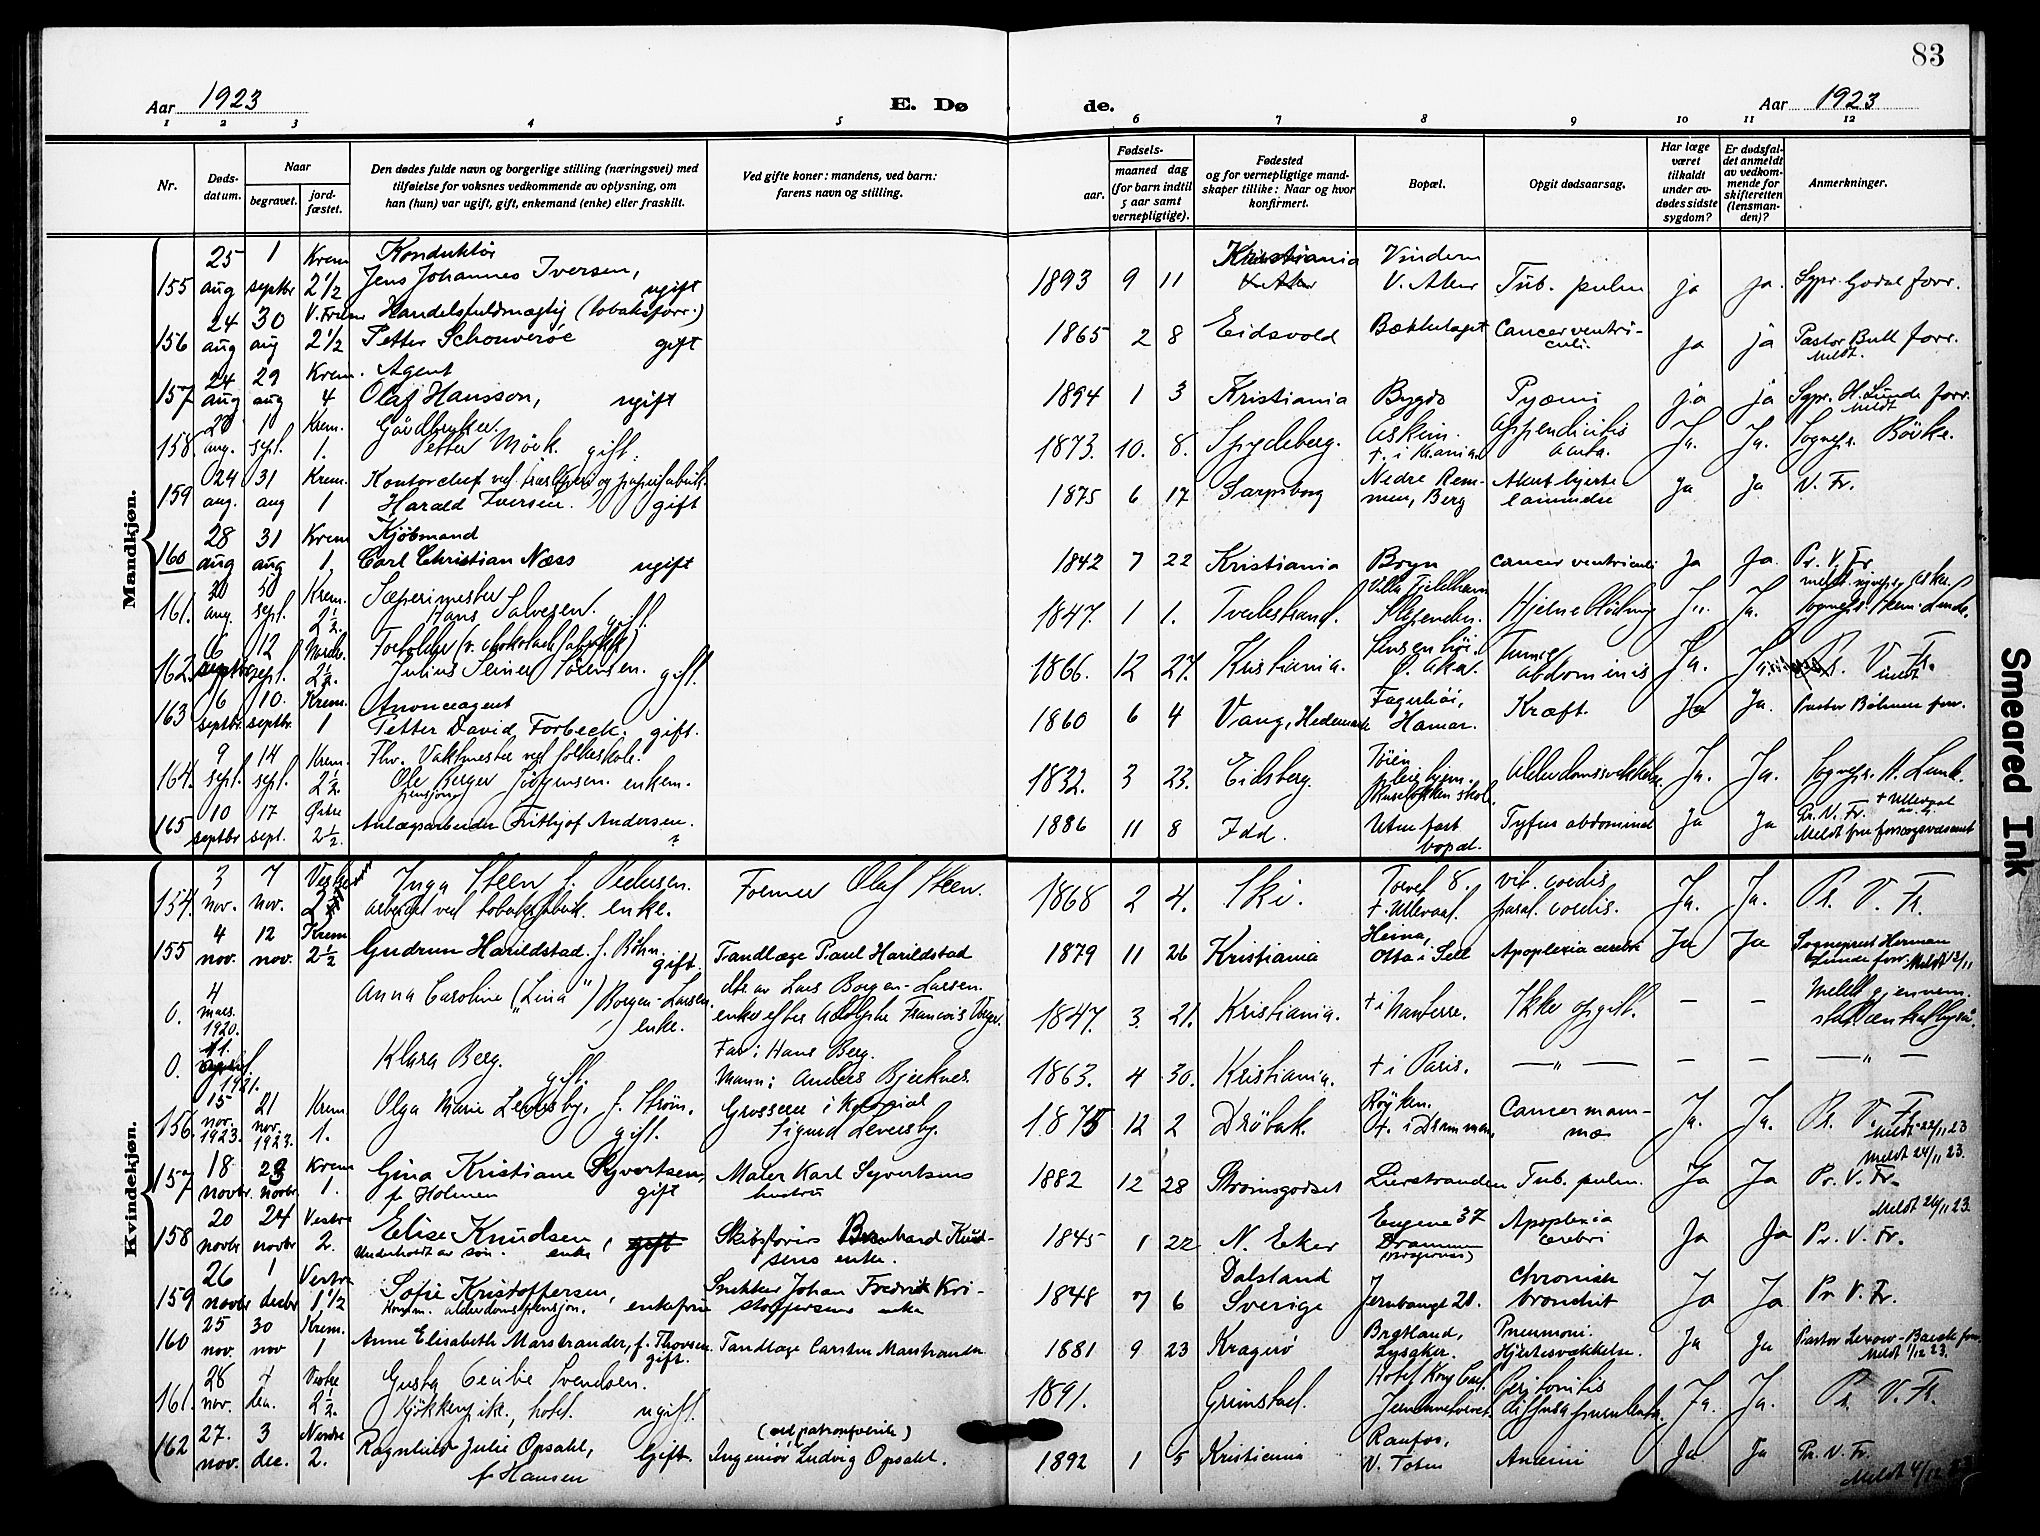 83
Aar 1923
E. Dø
de.
Aar 1923
1 2 3 4 5 6 7 8 9 10 11 12
Nr.
Døds-
datum.
Naar
begravet.
jord-
fæstet.
Den dødes fulde navn og borgerlige stilling (næringsvei) med
tilføielse for voksnes vedkommende av oplysning, om
han (hun) var ugift, gift, enkemand (enke) eller fraskilt.
Ved gifte koner: mandens, ved barn:
farens navn og stilling.
Fødsels-
aar.
maaned dag
(for barn indtil
5 aar samt
vernepligtige).
Fødested
og for vernepligtige mand-
skaper tillike: Naar og hvor
konfirmert.
Bopæl.
Opgit dødsaarsag.
Har læge
været
tilkaldt
under av-
dødes sidste
sygdom?
Er dødsfal-
det anmeldt
av vedkom-
mende for
skifteretten
(lensman-
den)?
Anmerkninger.
Mandkjøn.
25 1 Krem Konduktør Kristiania Vindern
155 aug septbr 2 1/2 Jens Johannes Iversen, ugift 1893 9 11 V. Aker V. Aker Tub. pulm ja ja. Sypr. Godal forr.
24 30 V. Frim Handelsfuldmægtig (tobaksforr.)
156 aug aug 2 1/2 Petter Schouverøe gift 1865 2 8 Eidsvold Bækkelaget Cancer ventri-
culi. ja ja Pastor Bull forr.
Meldt.
24 29 Krem. Agent
157 aug aug 4 Olaf Hansson, ugift 1894 1 3 Kristiania Bygdø Pyæmi ja ja Sypr. H. Lunde forr.
Meldt
28 1 Krem. Gårdbruker.
158. aug. sept. 1. Petter Mörk. gift. 1873. 10. 8. Spydeberg. Askim. Appendicitis
acuta. Ja. Ja. Sognepr. Bövke.
29 31 Krem. Kontorchef ved træsliperi og papirfabrik.
159 aug. aug 1 Harald Iversen. gift 1875 6 17 Sarpsborg Nedre Rem-
men, Berg Akut hjerte-
lammelse Ja Ja V. Fr.
28 31 Krem Kjøbmand
160 aug aug 1, Carl Christian Næss ugift 1842 7 22 Kristiania Bryn Cancer ventriculi Ja Ja. Pr. V. Fr.
30 Krem. Sæperimester Villa Fjeldheim
161. aug. sept. 2 1/2. Hans Salvesen. gift. 1847. 1 1. Tvedestrand. Slependen. Hjerneblödning Ja. Ja. Sognepr. Herm. Lunde.
6 12 Nordre
162. septbr sept. 2 1/2. Julius Seiner Sörensen. gift. 1866. 12 27. Kristiania. Ö. Aker. Tumor
abdominis Ja. Ja. Pr. V. Fr.
meldt
6 10. Krem. Anonceagent
163 septbr. septbr. 1 Petter David Forbeck. gift. 1860 6 4 Vang, Hedemark Fagerhöi,
Hamar. Kræft. Ja Ja. Pastor Böhmer forr.
9 14 Krem. Fhv. Vaktmester ved folkeskole.
164. sept. sept. 2 1/2. Ole Berger Jörgensen. enkem.
pensjon 1832. 3 23. Eidsberg. Töien
pleiehjem. Alderdomssvækkelse. Ja. Ja. Sognepr. H. Lunde.
10 17 Østre
165 septbr sept. 2 1/2 Anlægsarbeider Frithjof Andersen. ? 1886 11 8 Idd. Uten fast
bopæl. Tyfus abdominal ja ja Pr. V. Fr. + Ullevaal
Meldt fra forsorgsvæsenet
Kvindekjøn.
3 7 Vestre
154. nov. nov. Inga Steen f. Pedersen.
Arbeidet ved tobakksfabrik. enke. Former Olaf Steen. 1868 2 4. Ski. Torvet 8.
+ Ullevaal. vit. cordis
paral. cordis. Ja. Ja. Pr. V. Fr.
4 12 Krem
155 nov. nov. 2 1/2 Gudrun Harildstad. f. Bøhn. gift, Tandlæge Paul Harildstad 1879 11 26 Kristiania Heina,
Otta i Sell Apoplexia cerebri Ja Ja Sogneprest Herman
Lunde forr. Meldt 13/11
4
0. mars.
1920. Anna Caroline ("Lina") Borgen-Larsen.
enke. dtr. av Lars Borgen-Larsen.
enke efter Adolphe Francois Verger. 1847. 3. 21. Kristiania. + i Nanterre. Ikke opgitt. — — Meldt gjennem
0. 11. april. 1921. Klara Berg. gift. Far: Hans Berg.
Mann: Anders Bjerknes. 1863. 4 30. Kristiania. + i Paris. — " — — — — " —
15 21 Krem
156. nov. 1923. nov. 1923. 1. Olga Marie Leversby, f. Strøm,
gift. Grosserer i kolonial
Sigurd Leversby. 1875 12 2 Dröbak. Röyken.
+ i Drammen. Cancer mam-
mæ Ja. Ja. Pr. V. Fr.
Meldt 22/11 23
18 23 Krem
157 novbr. novbr. 1. Gina Kristiane Syvertsen,
f. Holmen gift Maler Karl Syvertsens
hustru 1882 12 28 Strømsgodset Lierstranden Tub. pulm. Ja Ja Meldt 24/11 23.
Pr. V. Fr.
20 24 Vestre
158 novbr novbr 2. Elise Knudsen
Underholdt av søn. enke, gift Skibsfører Bernhard Knud-
sens enke. 1845 1 22 N. Eker Eugenes 37
Drammen Apoplexia
cerebri Ja Ja Meldt 26/11 23.
Pr. V. Fr.
26 1 Vestre
159 novbr decbr 1 1/2 Sofie Kristoffersen,
Komm. alderdomspensjon. enkefrue Snekker Johan Fredrik Kri-
stoffersens enke 1848 7 6 Dalsland
Sverige Jernbangt 20. Chronisk
bronchit Ja Ja Pr. V. Fr.
25 30 Krem.
160 nov. nov 1 Anne Elisabeth Marstrander, f. Thorsen
gift. Tandlæge Carsten Marstrander 1881 9 23 Kragerø Bratland,
Lysaker. Pneumoni.
Hjertesvækkelse. Ja Ja Pastor Lexow-Barth forr.
Meldt 1/12 23.
28 4 Vestre
161. nov. dec. 2 1/2. Gusta Cecilie Svendsen.
Kjøkkenpike, hotel. ugift. 1891. Grimstad. Hotel Kong Carl.
Jernbanetorvet. Peritonitis
diffusa purulenta. Ja. Ja. Pr. V. Fr.
27. 3 Nordre
162 nov. dec. 2. Ragnhild Julie Opsahl,
f. Hansen gift. (ved patronfabrik)
Ingeniør Ludvig Opsahl. 1892 1 5 Kristiania Raufos,
V. Toten Anæmi Ja Ja Pr. V. Fr.
Meldt 4/12 23
Smeared Ink